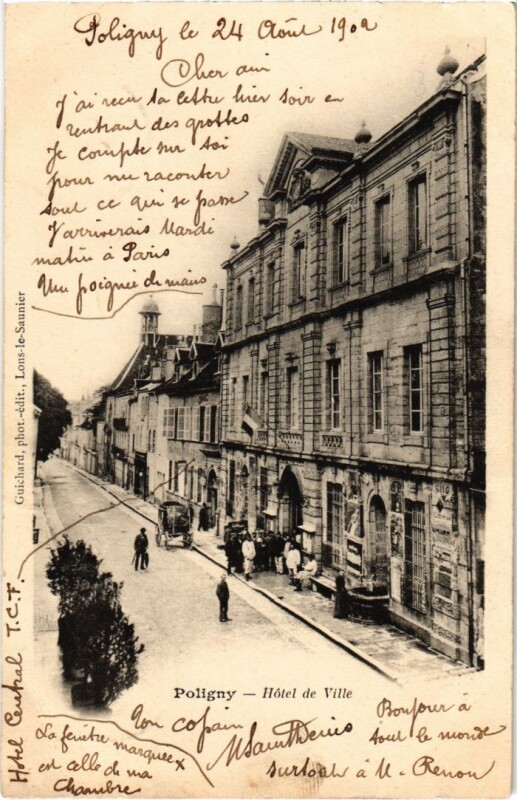 Poligny le 24 Août 1902
Cher ami
J'ai reçu ta lettre hier soir en
rentrant des grottes
Je compte sur toi
pour me raconter
tout ce qui se passe
J'arriverais Mardi
matin à Paris
Une poignée de mains
Guichard, phot.-édit., Lons-le-Saunier
Hôtel Central T.C.F.
Poligny — Hôtel de Ville
La fenêtre marquée x
est celle de ma
chambre
Ton copain
M Saint Denis
Bonjour à
tout le monde
surtout à M. Renou